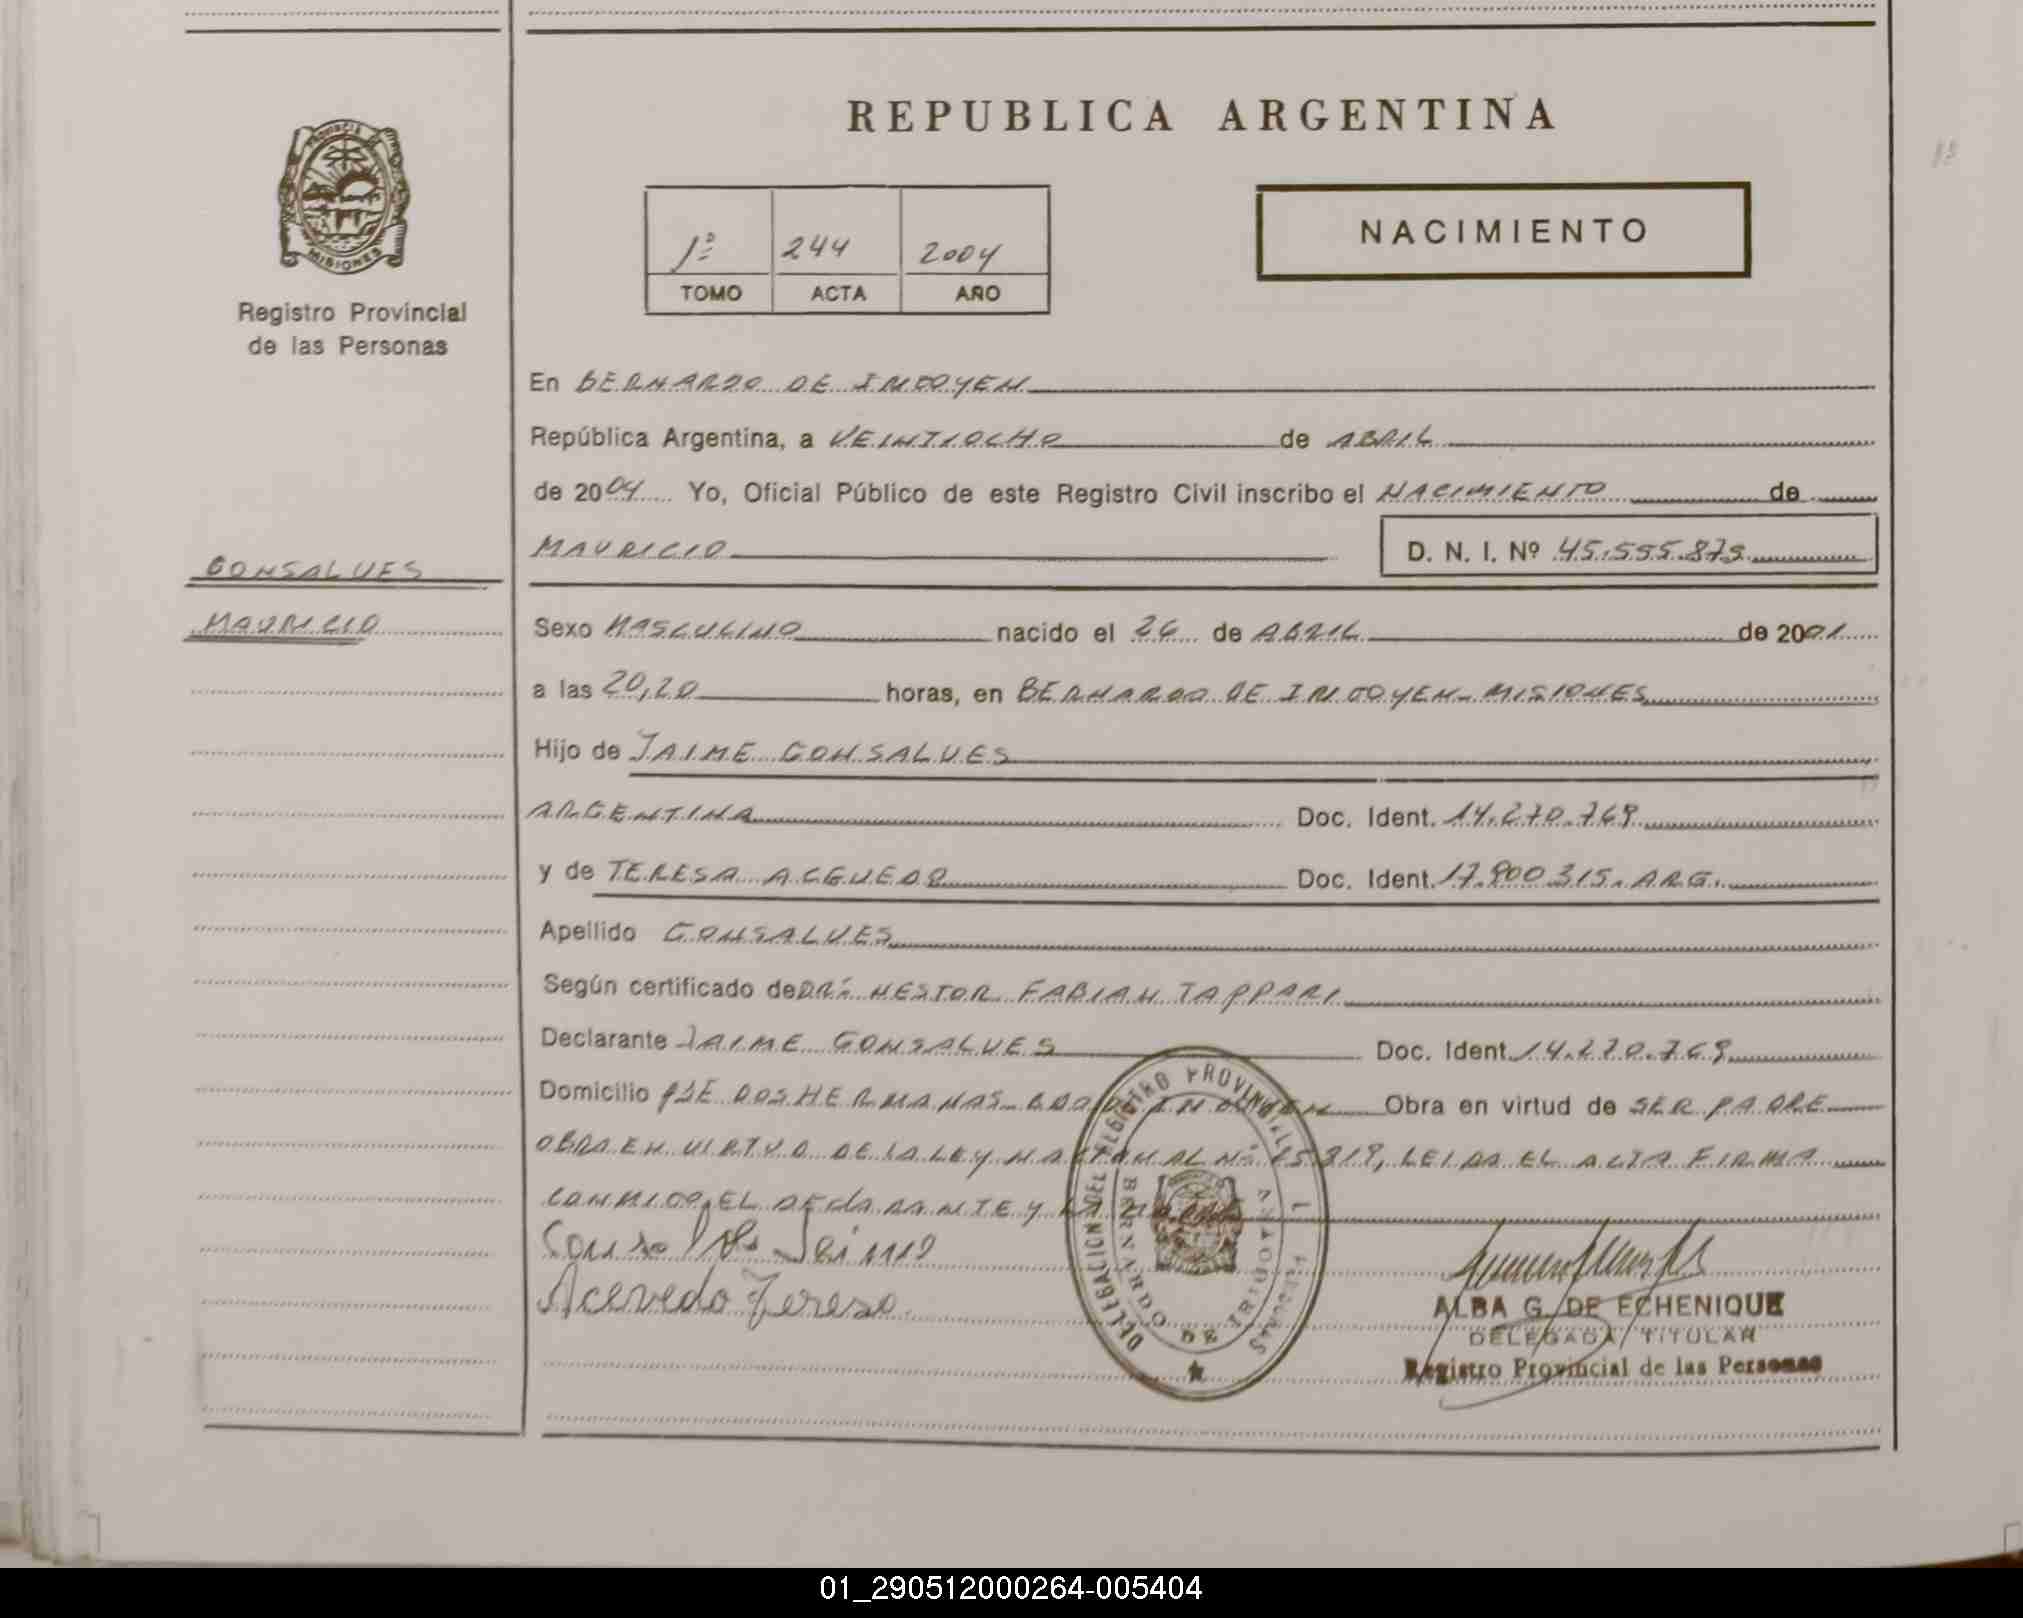 REPUBLICA ARGENTINA
PROVINCIA
MISIONES
Registro Provincial
de las Personas
1º 244 2004
TOMO ACTA AÑO
NACIMIENTO
En BERNARDO DE IRIGOYEN
República Argentina, a VEINTIOCHO de ABRIL
de 2004 Yo, Oficial Público de este Registro Civil inscribo el NACIMIENTO de
MAURICIO D. N. I. Nº 45.555.879
GONSALVES
MAURICIO
Sexo MASCULINO nacido el 26 de ABRIL de 2001
a las 20,20 horas, en BERNARDO DE IRIGOYEN - MISIONES
Hijo de JAIME GONSALVES
ARGENTINA Doc. Ident. 14.270.769
y de TERESA ACEVEDO Doc. Ident. 17.900.315. ARG.
Apellido GONSALVES
Según certificado de DR. NESTOR FABIAN TAPPARI
Declarante JAIME GONSALVES Doc. Ident. 14.270.769
Domicilio PJE DOS HERMANAS - BDO DE IRIGOYEN Obra en virtud de SER PADRE
OBRA EN VIRTUD DE LA LEY NACIONAL Nº 25.819, LEIDA EL ACTA FIRMA
CONMIGO EL DECLARANTE Y LA MADRE
Jaime
Acevedo Teresa
DELEGACION DEL REGISTRO PROVINCIAL
BERNARDO DE IRIGOYEN
MISIONES
ALBA G. DE ECHENIQUE
DELEGADA TITULAR
Registro Provincial de las Personas
01_290512000264-005404